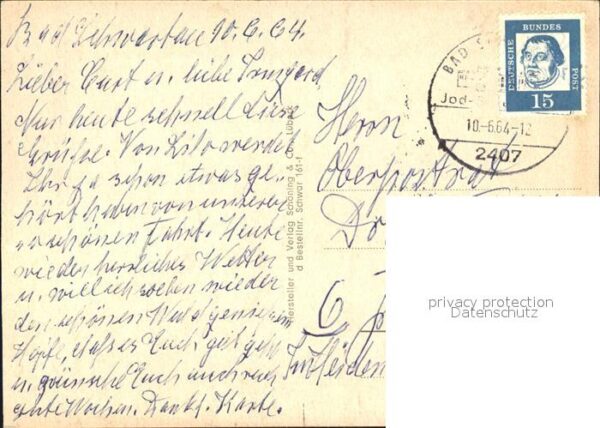 Bad Schwartau 10.6.64.
Lieber Curt u. liebe Irmgard,
Nur heute schnell liebe
Grüße. Von Lilo werdet
Ihr ja schon etwas ge-
hört haben von unserer
so schönen Fahrt. Heute
wieder herrliches Wetter
u. will ich soeben wieder
den schönen Wald geniessen
Hoffe, dass es Euch gut geht
u. wünsche Euch auch noch
gute Wochen. Dankt. Karte.
Hersteller und Verlag Schöning & Co., Lübeck
Bestellnr. Schwar 161-f
DEUTSCHE BUNDES POST
15
BAD
Jod-
10-6.64-12
2407
Herrn
Oberpostrat
6
Im
privacy protection
Datenschutz